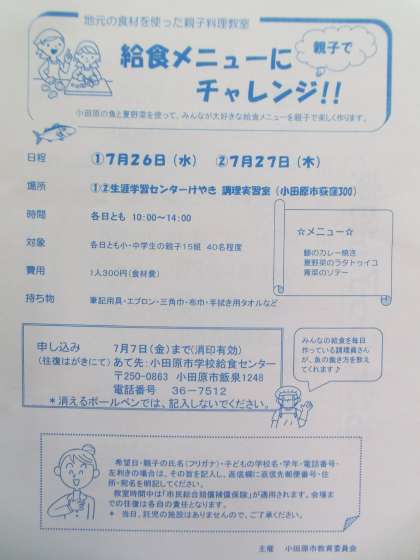 地元の食材を使った親子料理教室
給食メニューに
親子で
チャレンジ!!
小田原の魚と夏野菜を使って、みんなが大好きな給食メニューを親子で楽しく作ります。
日程 ①7月26日(水) ②7月27日(木)
場所 ①②生涯学習センターけやき 調理実習室(小田原市荻窪300)
時間 各日とも 10:00~14:00
対象 各日とも小・中学生の親子15組 40名程度
費用 1人300円(食材費)
持ち物 筆記用具・エプロン・三角巾・布巾・手拭き用タオルなど
☆メニュー☆
鯵のカレー焼き
夏野菜のラタトゥイユ
青菜のソテー
申し込み 7月7日(金)まで(消印有効)
(往復はがきにて) あて先:小田原市学校給食センター
〒250-0863 小田原市飯泉1248
電話番号 36-7512
*消えるボールペンでは、記入しないでください。
みんなの給食を毎日
作っている調理員さん
が、魚の捌き方を教え
てくれます♪
希望日・親子の氏名(フリガナ)・子どもの学校名・学年・電話番号・
左利きの場合は、その旨を記入し、返信欄に返信先郵便番号・住
所・宛名を明記してください。
教室時間中は「市民総合賠償補償保険」が適用されます。会場ま
での往復は各自の責任となります。
* 当日、託児の施設はありませんので、ご了承ください。
主催 小田原市教育委員会